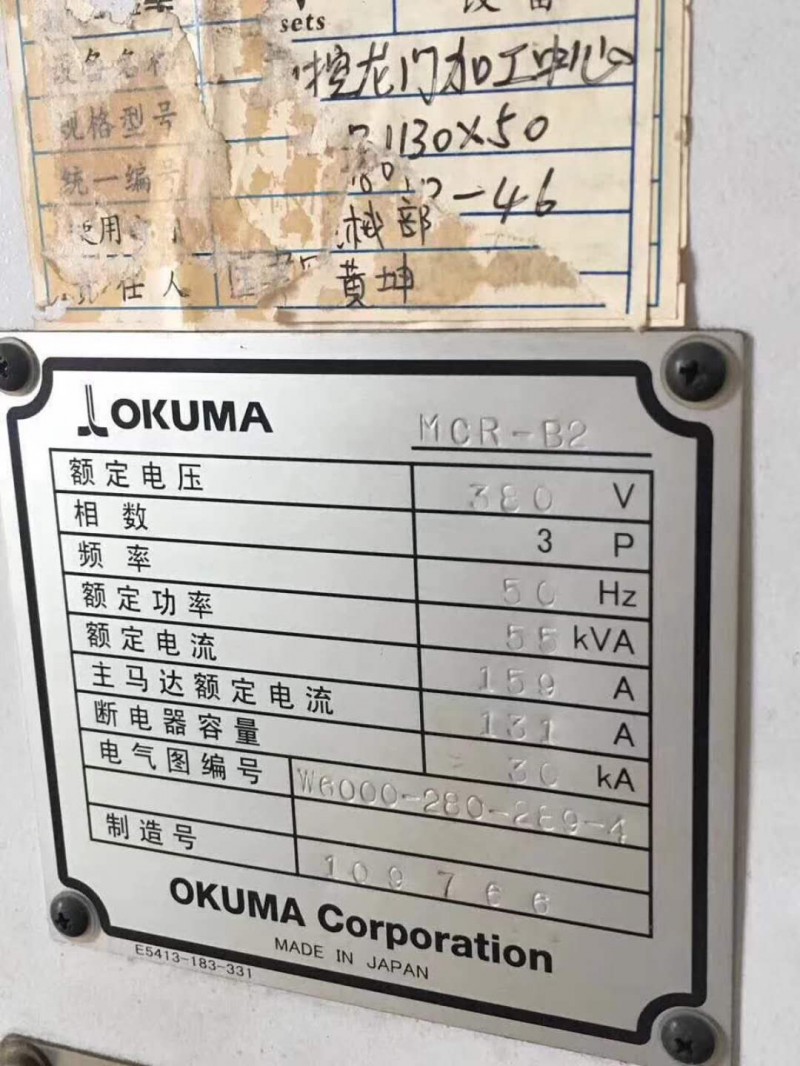 sets
设备
设备名称 控龙门加工中心
规格型号 1130X50
统一编号 -46
使用 械部
责任人 黄坤
OKUMA MCR-B2
额定电压 380 V
相数 3 P
频率 50 Hz
额定功率 55 kVA
额定电流 159 A
主马达额定电流 131 A
断电器容量 30 kA
电气图编号 W6000-280-289-4
制造号 109766
OKUMA Corporation
MADE IN JAPAN
E5413-183-331